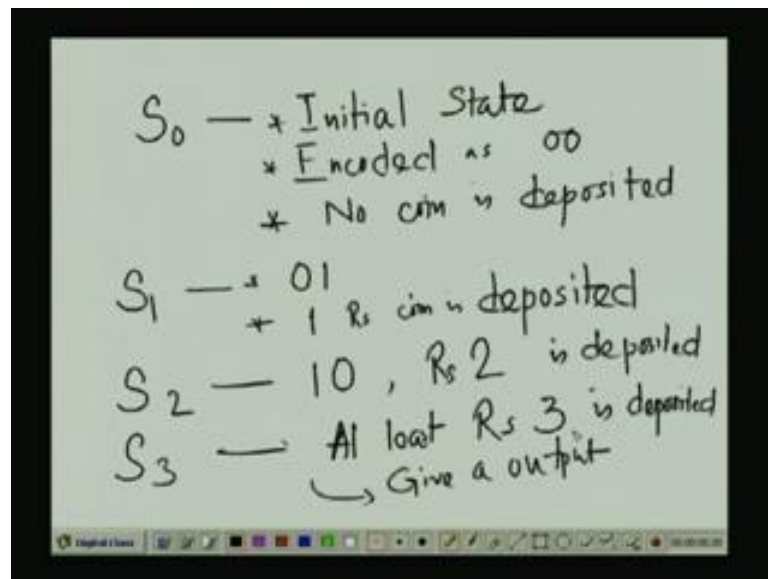 S0 — * Initial State
* Encoded as 00
* No coin is deposited
S1 — * 01
* 1 Rs coin is deposited
S2 — 10 , Rs 2 is deposited
S3 — At least Rs 3 is deposited
↳ Give a output